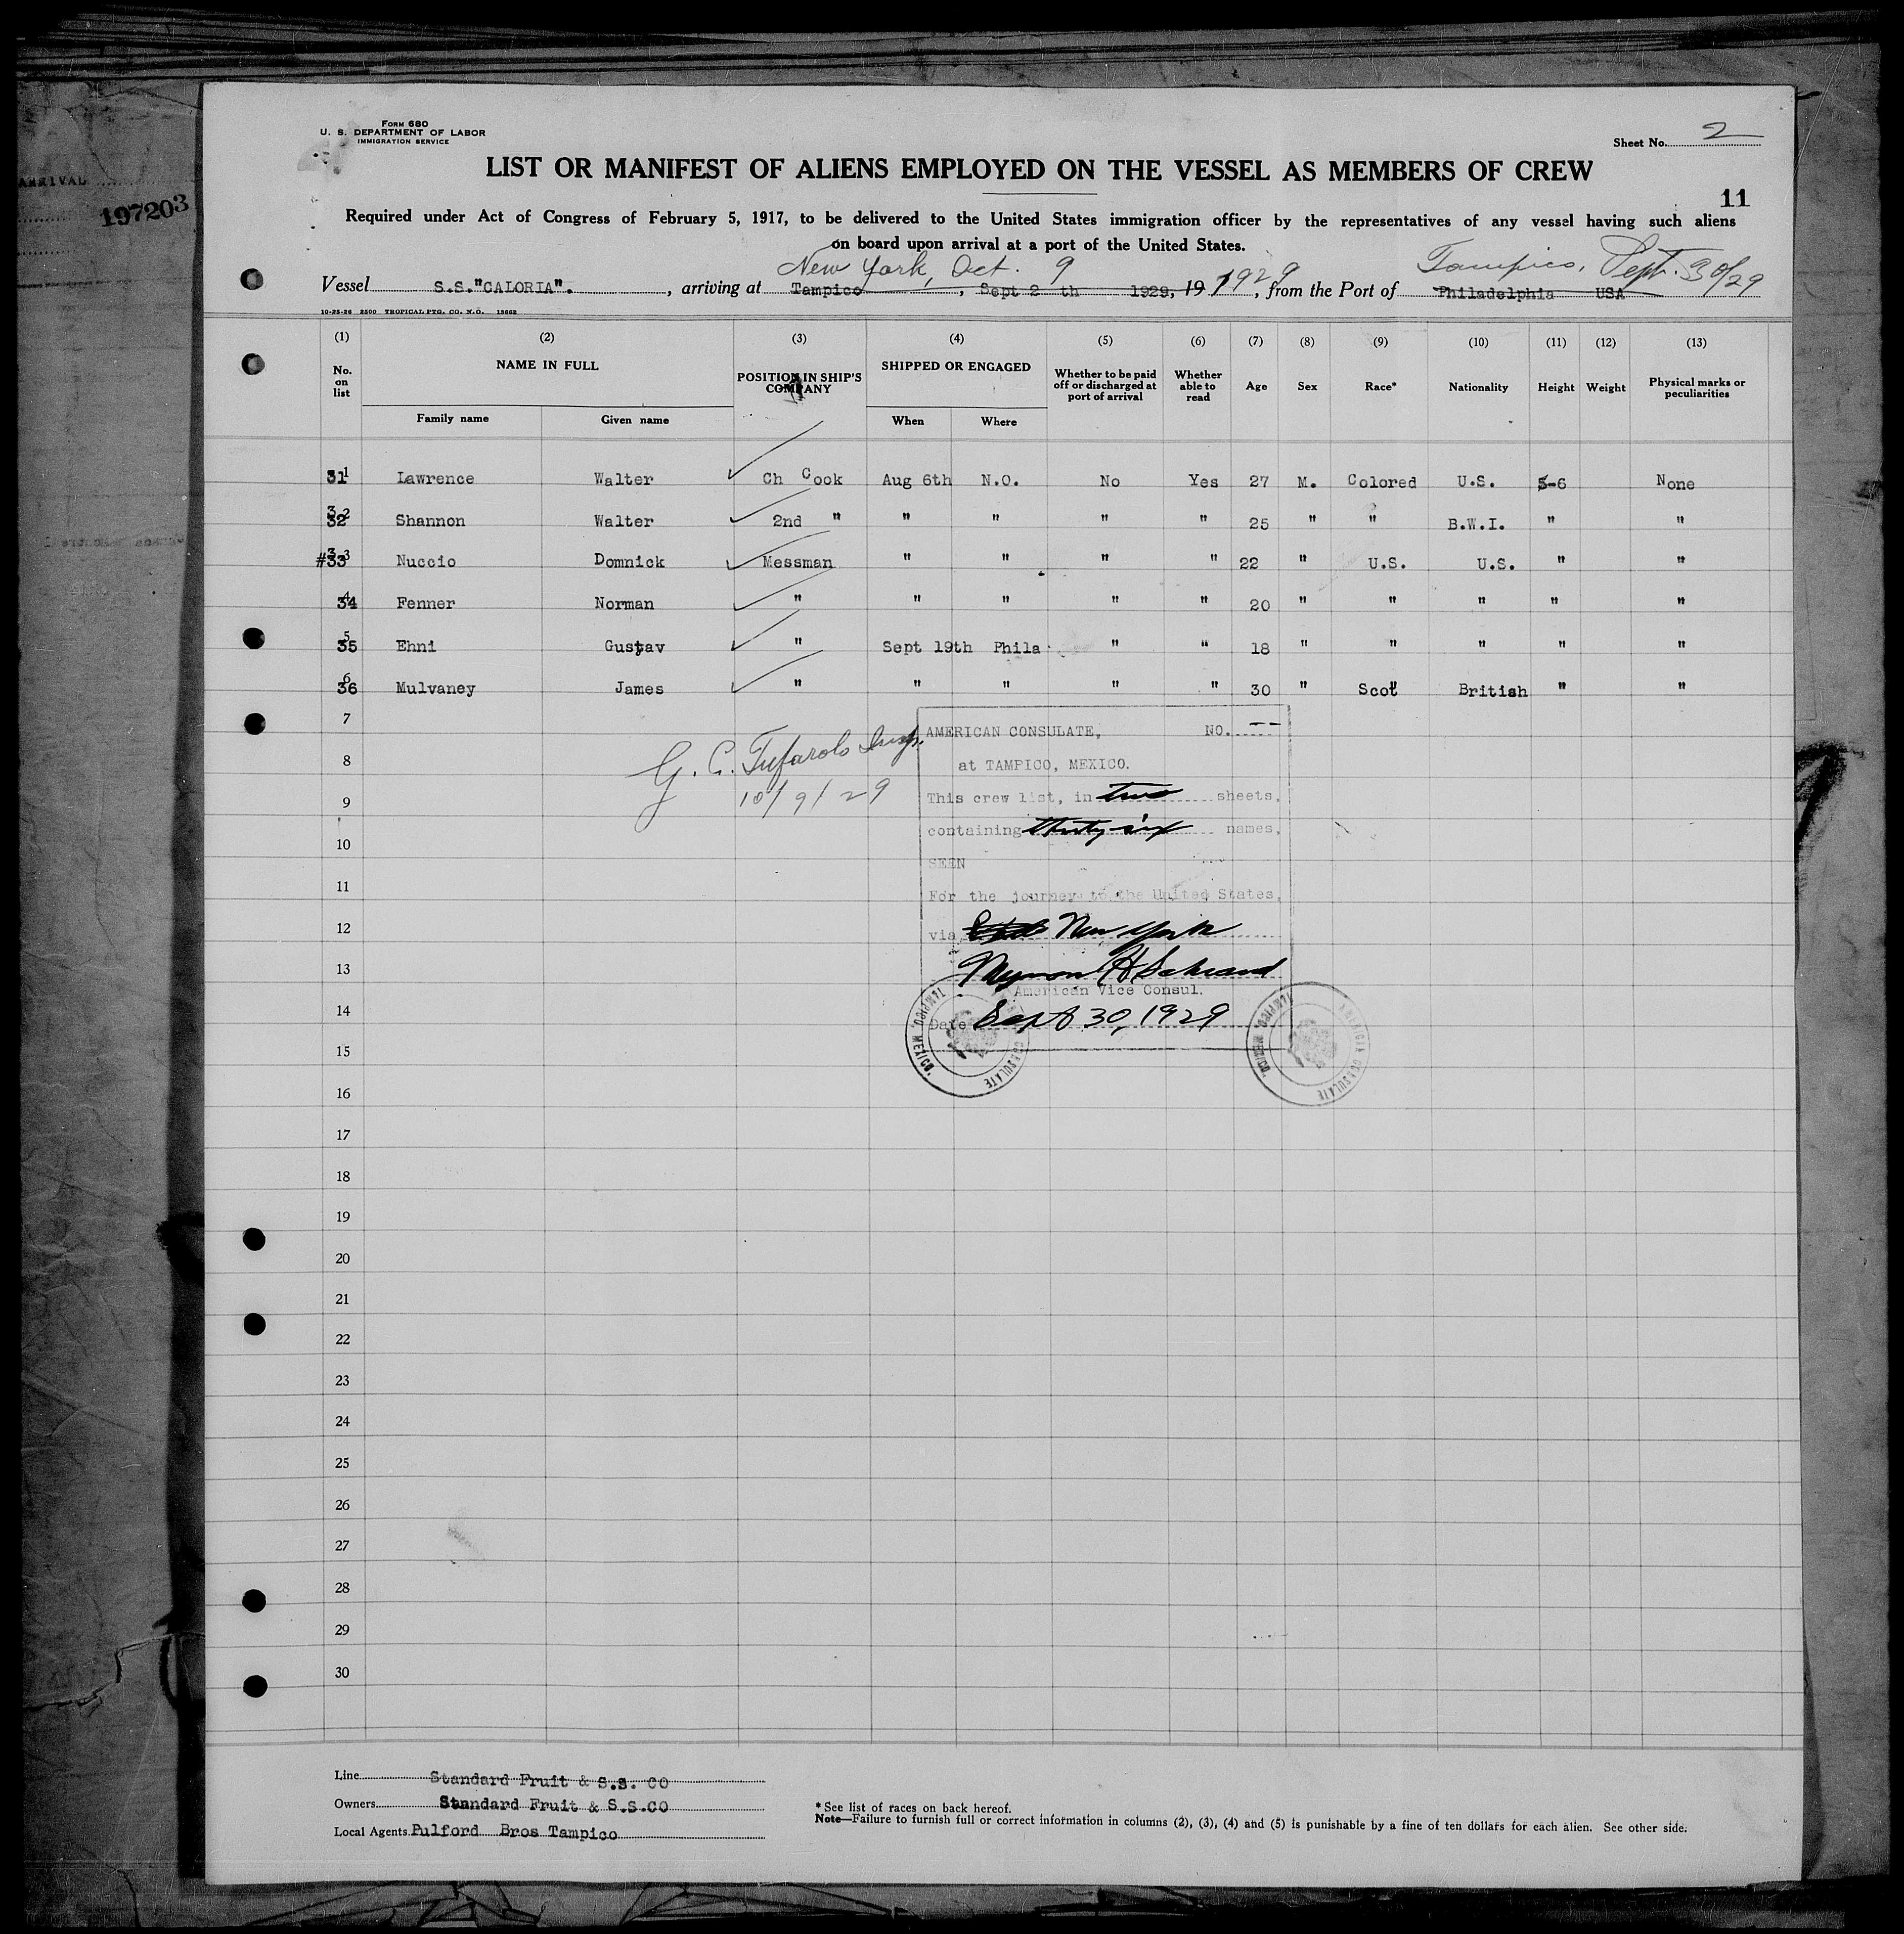 ARRIVAL
197203
Form 680
U. S. DEPARTMENT OF LABOR
IMMIGRATION SERVICE
Sheet No. 2
LIST OR MANIFEST OF ALIENS EMPLOYED ON THE VESSEL AS MEMBERS OF CREW
11
Required under Act of Congress of February 5, 1917, to be delivered to the United States immigration officer by the representatives of any vessel having such aliens
on board upon arrival at a port of the United States.
New York, Oct. 9 1929 Tampico, Sept. 30/29
Vessel S.S."CALORIA". , arriving at Tampico , Sept 2 th 1929, 19 , from the Port of Philadelphia USA
10-25-26 2500 TROPICAL PTG. CO. N.O. 13662
(1) (2) (3) (4) (5) (6) (7) (8) (9) (10) (11) (12) (13)
No. on list NAME IN FULL POSITION IN SHIP'S COMPANY SHIPPED OR ENGAGED Whether to be paid off or discharged at port of arrival Whether able to read Age Sex Race* Nationality Height Weight Physical marks or peculiarities
Family name Given name When Where
31 1 Lawrence Walter Ch Cook Aug 6th N.O. No Yes 27 M. Colored U.S. 5-6 None
32 2 Shannon Walter 2nd " " " " " 25 " " B.W.I. " "
#33 3 Nuccio Domnick Messman " " " " 22 " U.S. U.S. " "
34 4 Fenner Norman " " " " " 20 " " " " "
35 5 Ehni Gustav " Sept 19th Phila " " 18 " " " " "
36 6 Mulvaney James " " " " " 30 " Scot British " "
7
8
9
10
11
12
13
14
15
16
17
18
19
20
21
22
23
24
25
26
27
28
29
30
G. C. Tufarolo Insp.
10/9/29
AMERICAN CONSULATE, NO. --
at TAMPICO, MEXICO.
This crew list, in two sheets,
containing thirty six names,
SEEN
For the journey to the United States,
via New York
Myron H Schraud
American Vice Consul.
Date Sept 30, 1929
AMERICAN CONSULATE TAMPICO, MEXICO.
AMERICAN CONSULATE TAMPICO, MEXICO.
Line Standard Fruit & S.s. CO
Owners Standard Fruit & S.S.CO
Local Agents Pulford Bros Tampico
* See list of races on back hereof.
Note—Failure to furnish full or correct information in columns (2), (3), (4) and (5) is punishable by a fine of ten dollars for each alien. See other side.